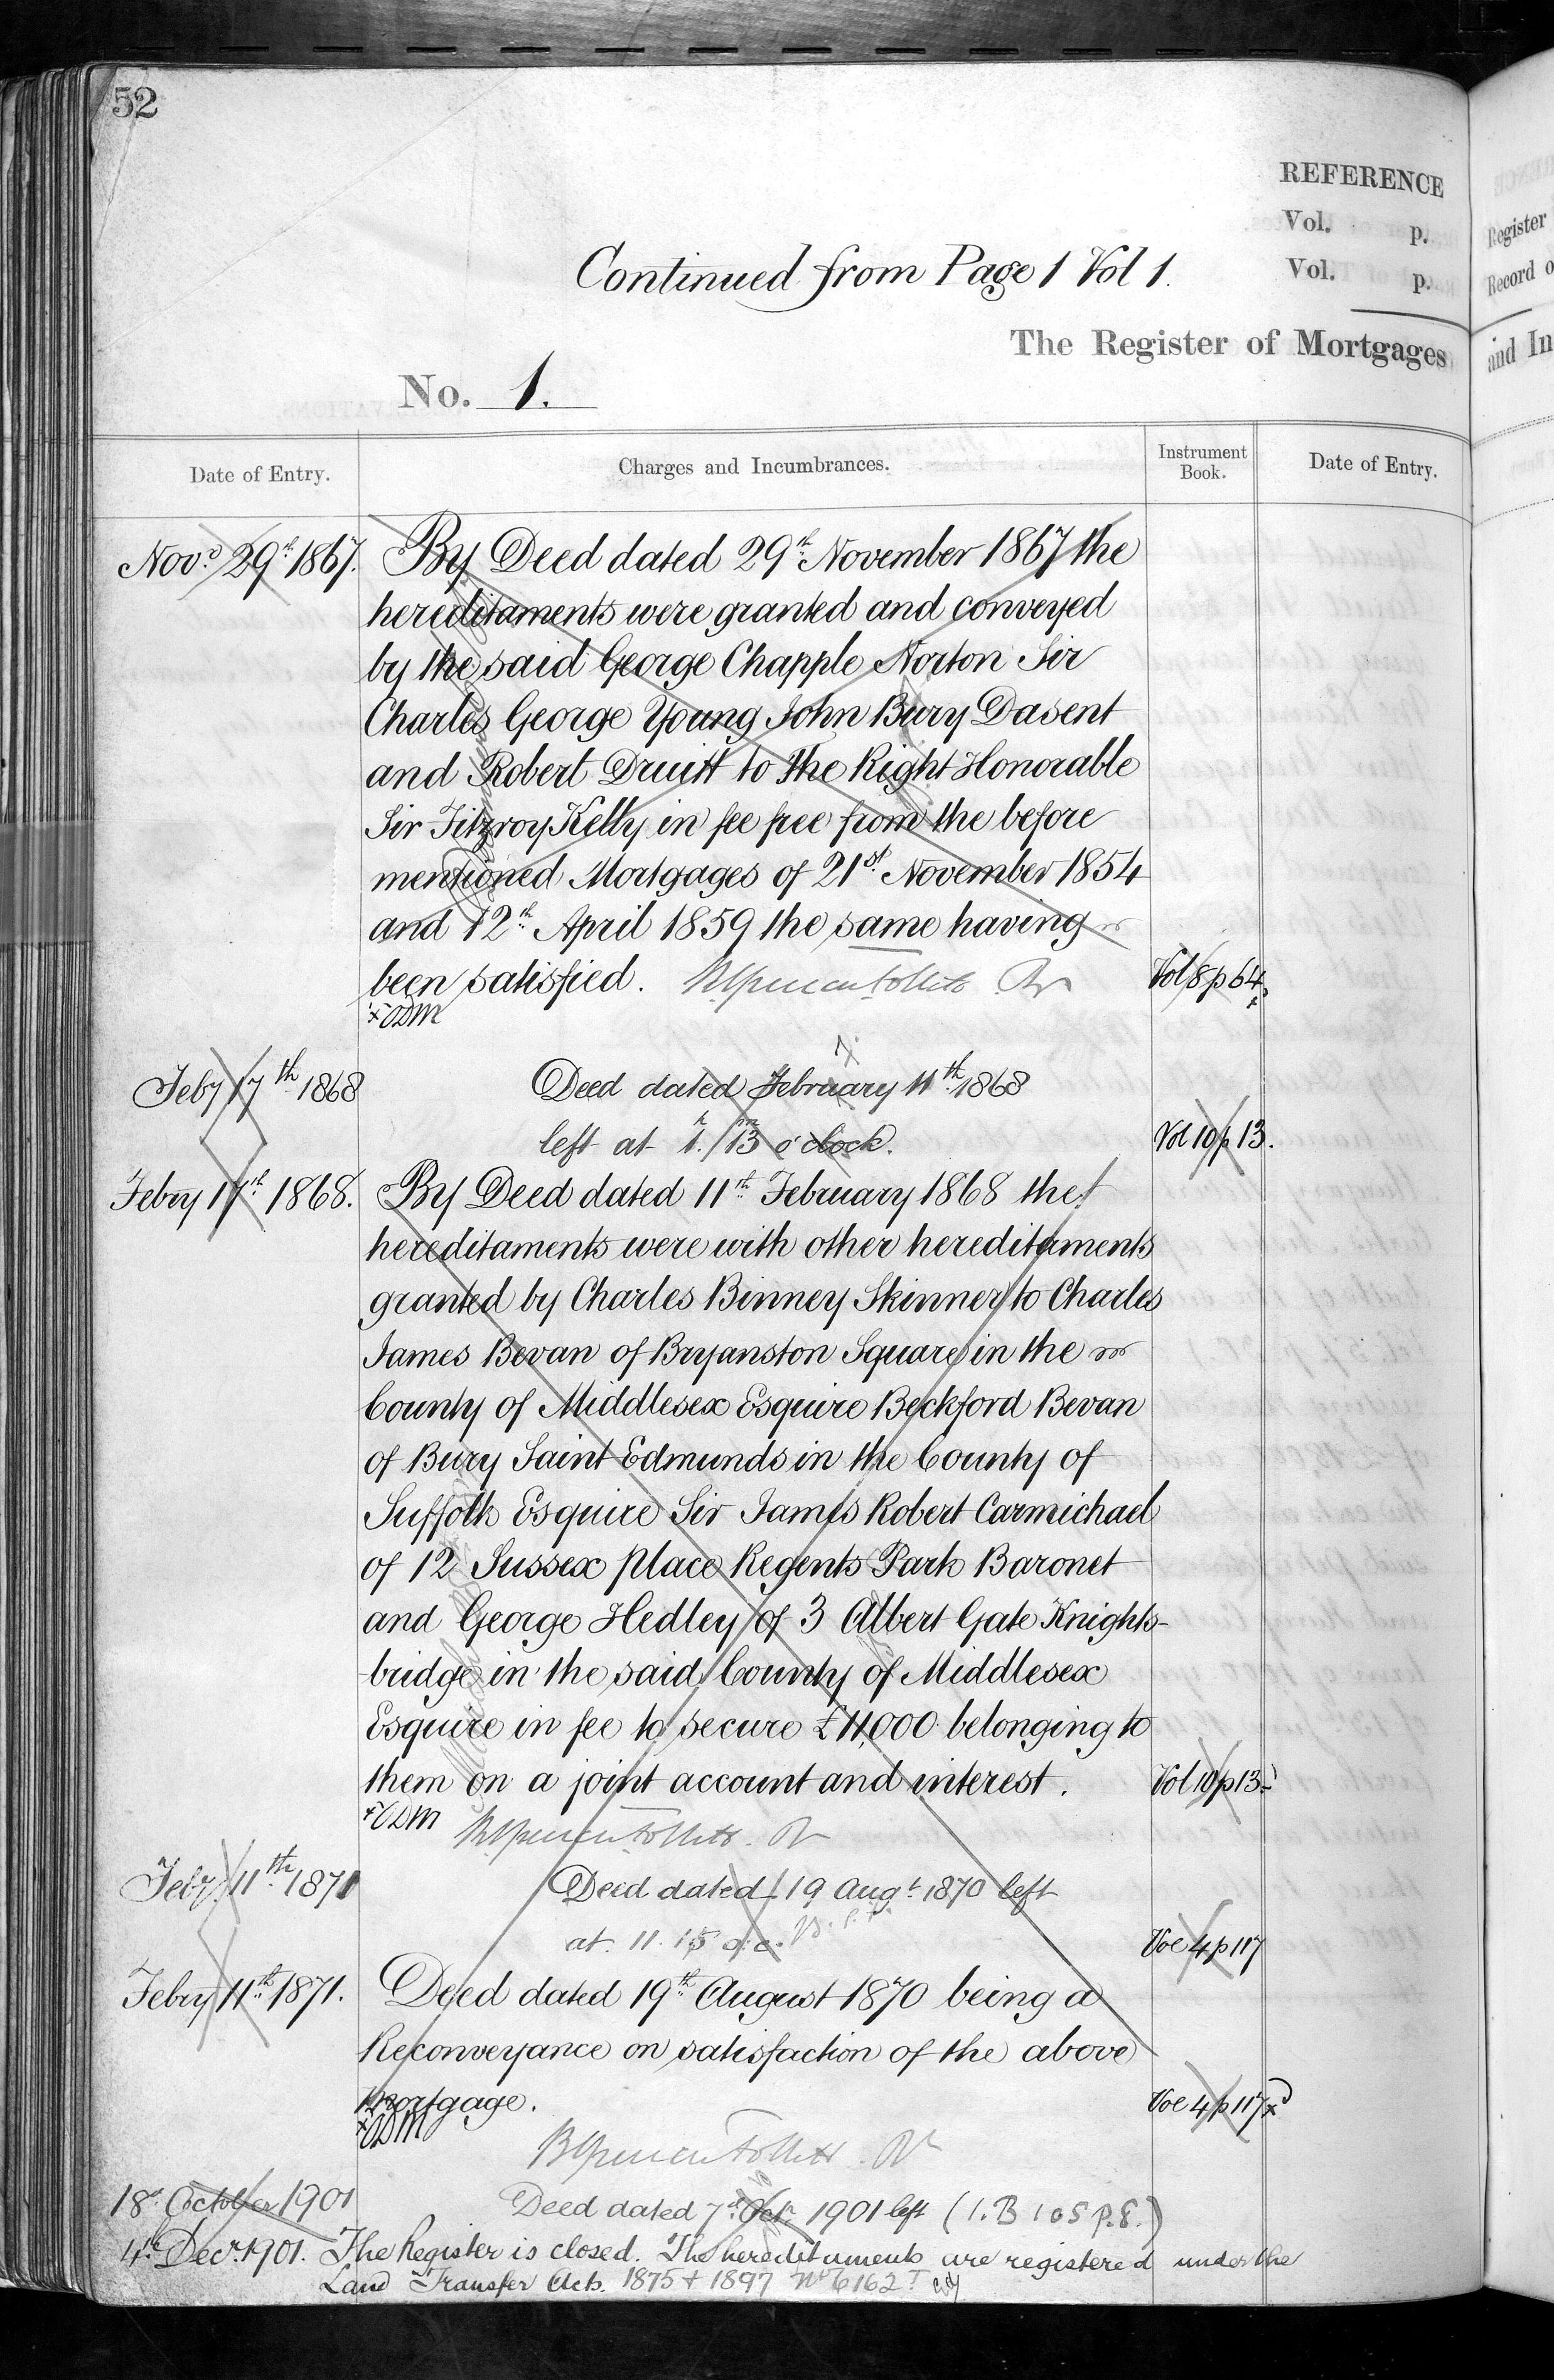 52
REFERENCE
Vol. p.
Vol. p.
Continued from Page 1 Vol 1.
The Register of Mortgages
No. 1.
Date of Entry.
Charges and Incumbrances.
Instrument Book.
Date of Entry.
Nov.r 29th 1867. By Deed dated 29th November 1867 the
hereditaments were granted and conveyed
by the said George Chapple Norton Sir
Charles George Young John Bury Dasent
and Robert Druitt to the Right Honorable
Sir Fitzroy Kelly in fee free from the before
mentioned Mortgages of 21st November 1854
and 12th April 1859 the same having
been satisfied. Vol 8 p 64
ODM
Feby 17th 1868 Deed dated February 11th 1868
left at 1h. 13m o'clock. Vol 10 p 13.
Febry 17th 1868. By Deed dated 11th February 1868 the
hereditaments were with other hereditaments
granted by Charles Binney Skinner to Charles
James Bevan of Bryanston Square in the
County of Middlesex Esquire Beckford Bevan
of Bury Saint Edmunds in the County of
Suffolk Esquire Sir James Robert Carmichael
of 12 Sussex place Regents Park Baronet
and George Hedley of 3 Albert Gate Knights-
bridge in the said County of Middlesex
Esquire in fee to secure £11,000 belonging to
them on a joint account and interest. Vol 10 p 13
ODM
Feby 11th 1871 Deed dated 19 Augt. 1870 left
at 11.15 o.c. Vol 4 p 117
Febry 11th 1871. Deed dated 19th August 1870 being a
Reconveyance on satisfaction of the above
mortgage. Vol 4 p 117
ODM
18 October 1901 Deed dated 7th Octr. 1901 left (I.B 105 p.8.)
4th Decr. 1901. The Register is closed. The hereditaments are registered under the
Land Transfer Acts. 1875 & 1897 No 6162
Register
Record
and In